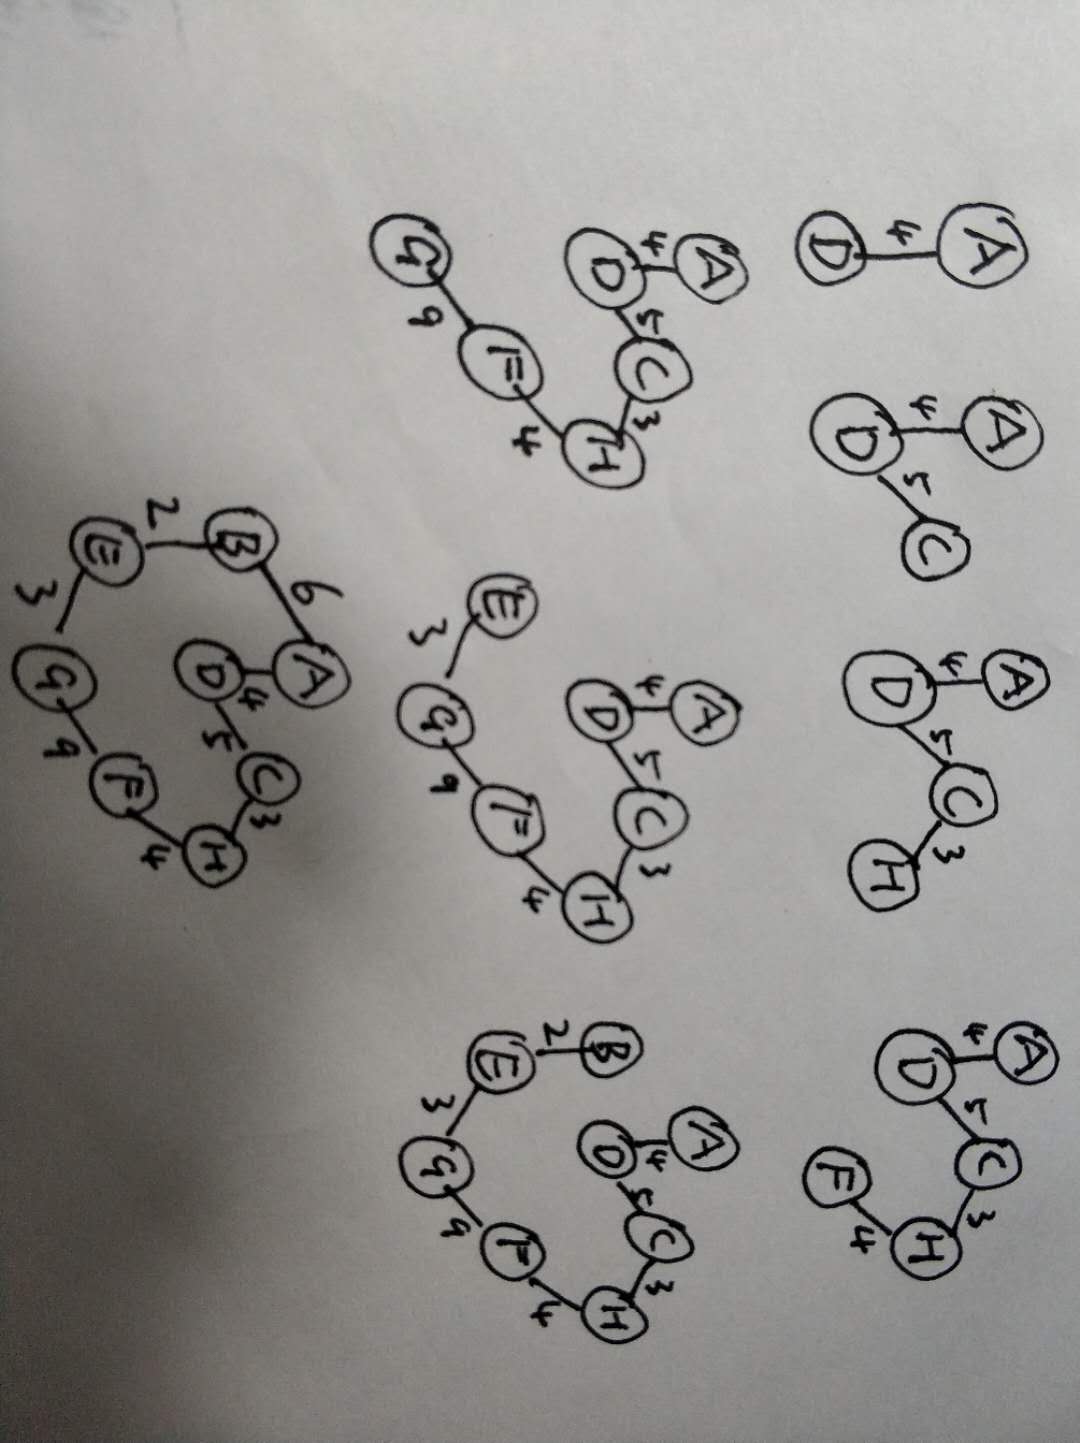 A 4 D
A 4 D 5 C
A 4 D 5 C 3 H
A 4 D 5 C 3 H 4 F
A 4 D 5 C 3 H 4 F 9 G
A 4 D 5 C 3 H 4 F 9 G 3 E
A 4 D 5 C 3 H 4 F 9 G 3 E 2 B
A 4 D 5 C 3 H 4 F 9 G 3 E 2 B 6